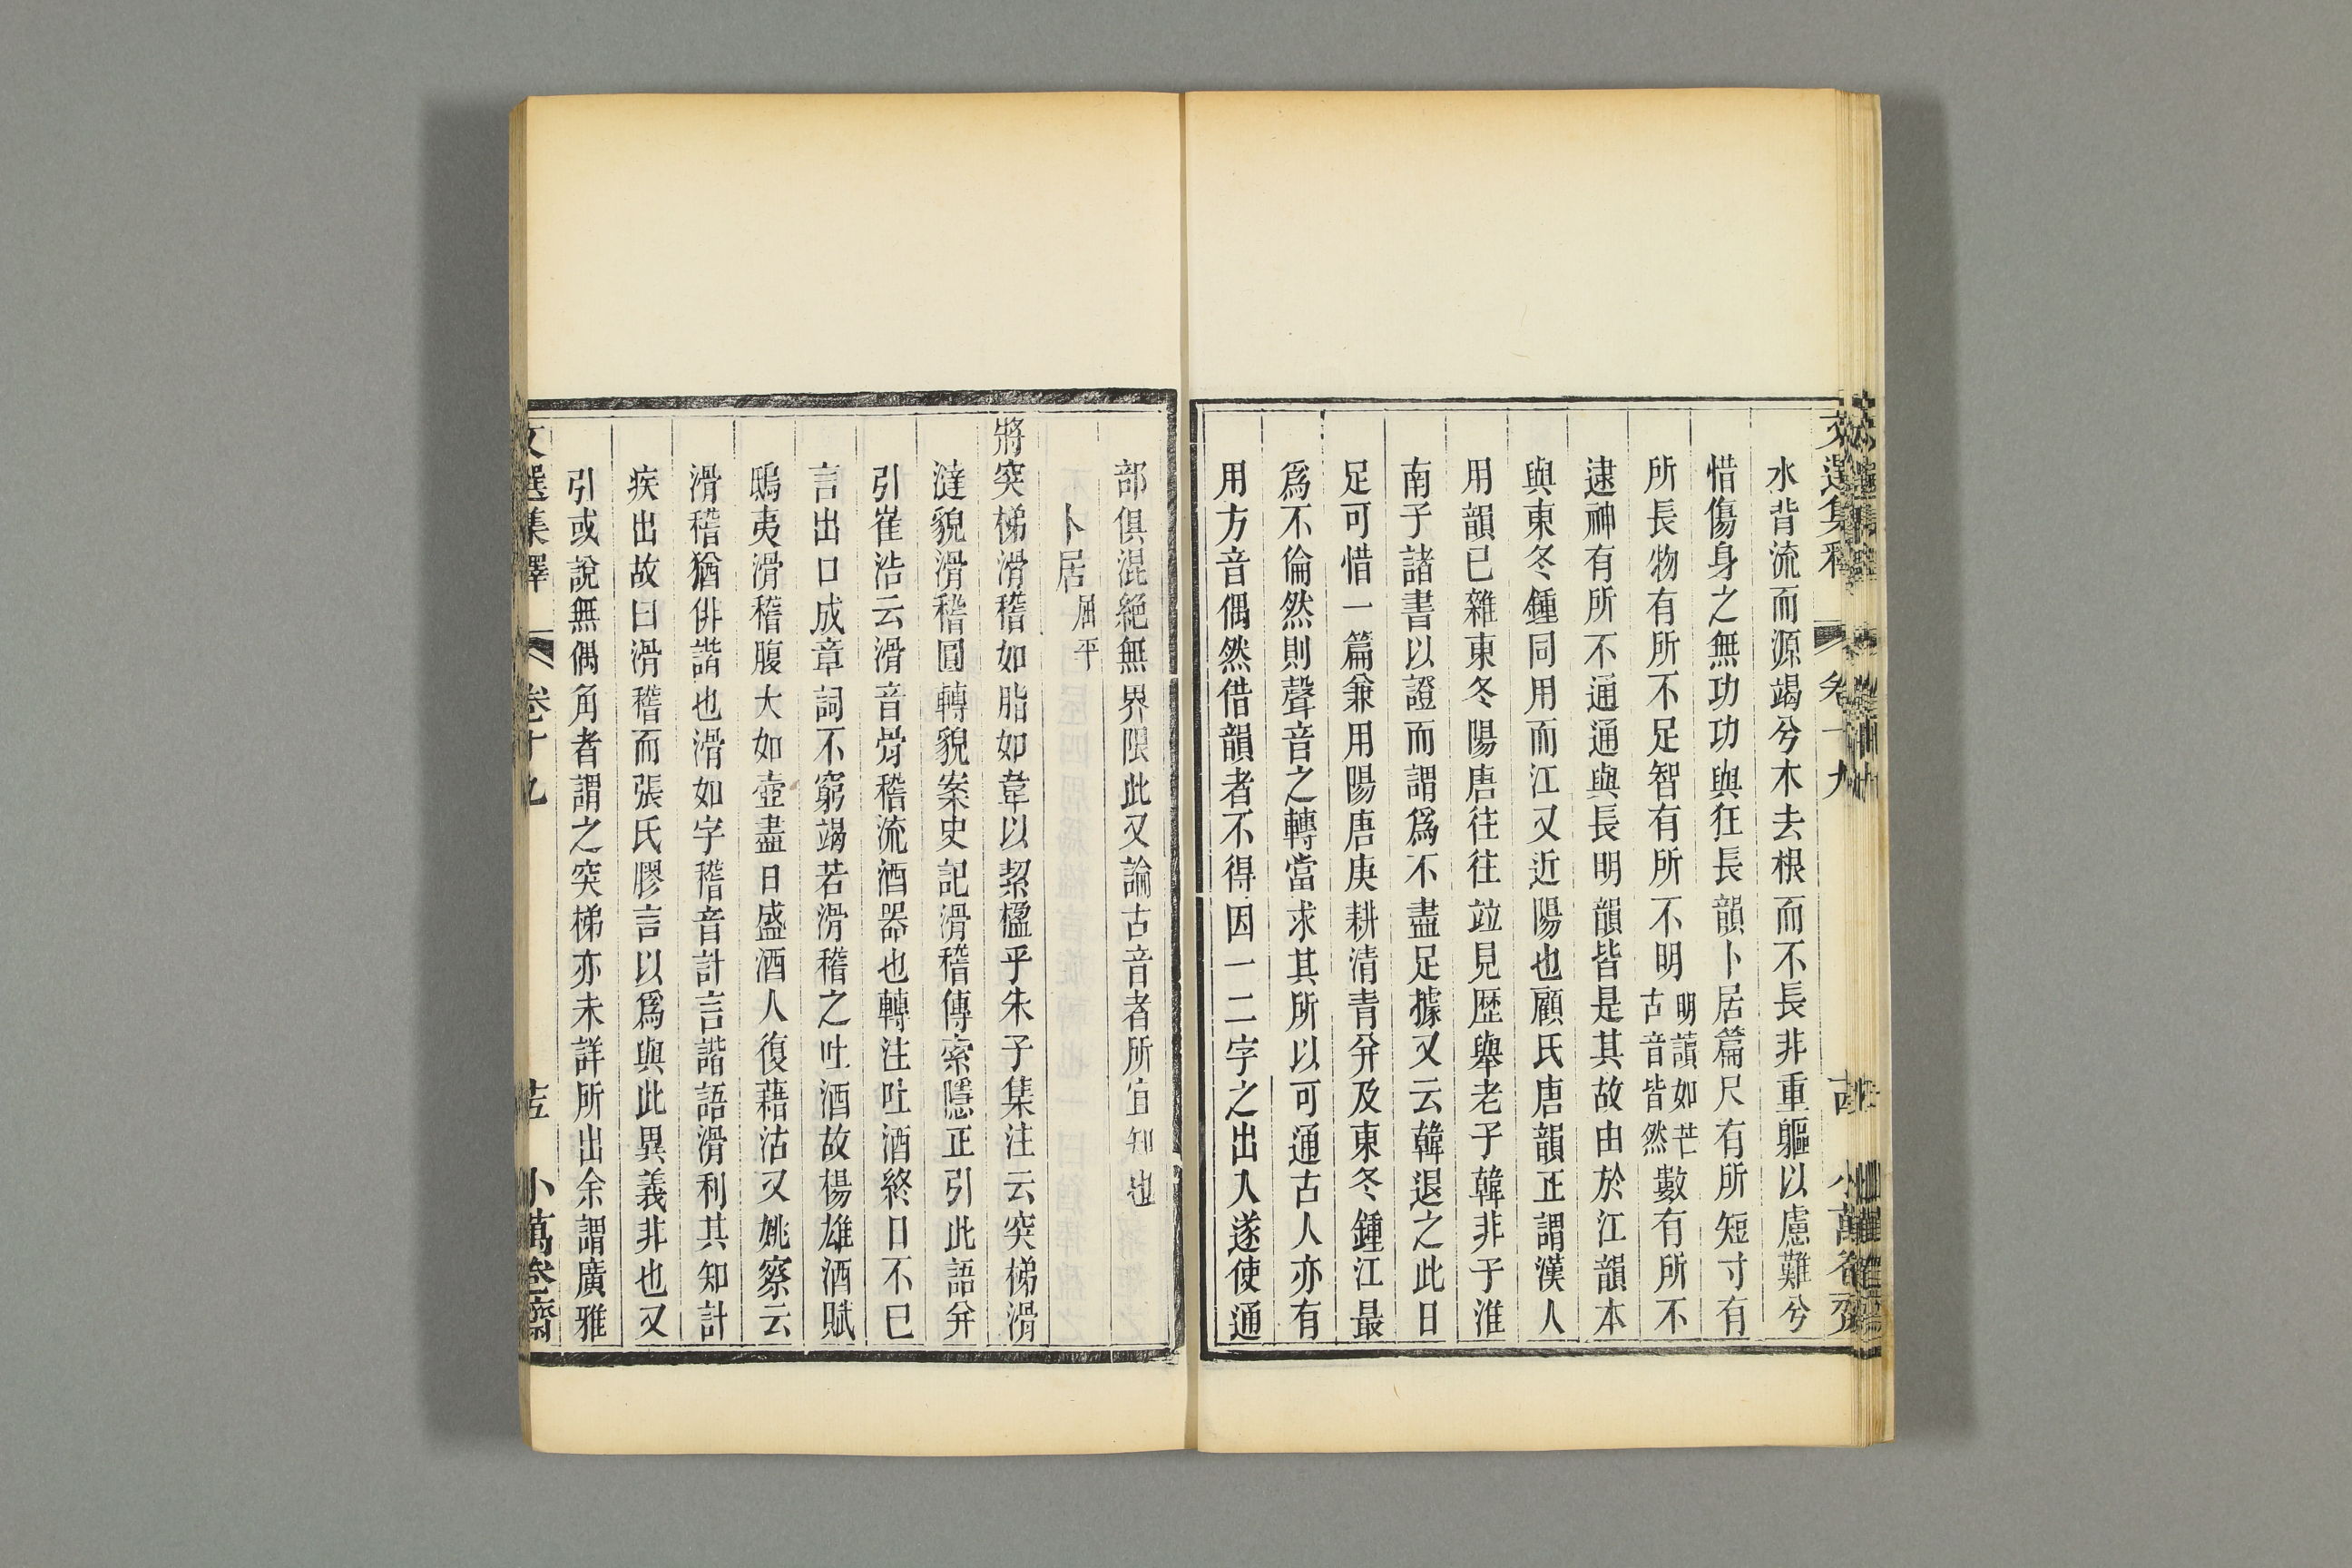 水背流而源竭兮木去根而不長非重軀以慮難兮
惜傷身之無功功與狂長韻卜居篇尺有所短寸有
所長物有所不足智有所不明明讀如芒古音皆然數有所不
逮神有所不通通與長明韻皆是其故由於江韻本
與東冬鍾同用而江又近陽也顧氏唐韻正謂漢人
用韻已雜東冬陽唐往往竝見歷舉老子韓非子淮
南子諸書以證而謂爲不盡足據又云韓退之此日
足可惜一篇兼用陽唐庚耕清青并及東冬鍾江最
爲不倫然則聲音之轉當求其所以可通古人亦有
用方音偶然借韻者不得因一二字之出入遂使通
部俱混絕無界限此又論古音者所宜知也
卜居屈平
將突梯滑稽如脂如韋以絜楹乎朱子集注云突梯滑
澾貌滑稽圓轉貌案史記滑稽傳索隱正引此語并
引崔浩云滑音骨稽流酒器也轉注吐酒終日不已
言出口成章詞不窮竭若滑稽之吐酒故楊雄酒賦
鴟夷滑稽腹大如壺盡日盛酒人復藉沽又姚察云
滑稽猶俳諧也滑如字稽音計言諧語滑利其知計
疾出故曰滑稽而張氏膠言以爲與此異義非也又
引或說無偶角者謂之突梯亦未詳所出余謂廣雅
文選集釋 卷十九 小萬卷齋